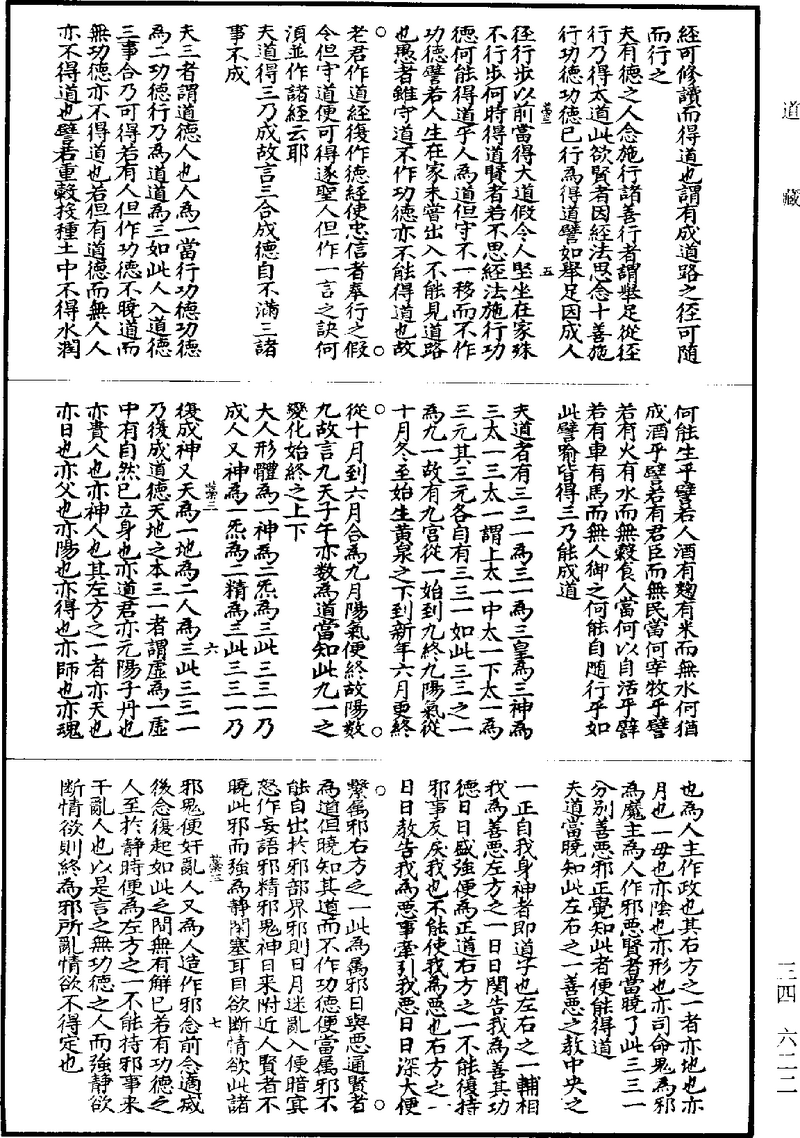 道藏
經可修讀而得道也謂有成道路之徑可隨
而行之
夫有德之人念施行諸善行者謂舉足從徑
行乃得太道此欲賢者因經法思念十善施
行功德功德已行為得道譬如舉足因成人
徑行步以前當得大道假令人堅坐在家殊
不行步何時得道賢者若不思經法施行功
德何能得道乎人為道但守不一移而不作
功德譬若人生在家未嘗出入不能見道路
也愚者雖守道不作功德亦不能得道也故
老君作道經復作德經使忠信者奉行之假
令但守道便可得遂聖人但作一言之訣何
須並作諸經云耶
夫道得三乃成故言三合成德自不滿三諸
事不成
夫三者謂道德人也人為一當行功德功德
為二功德行乃為道道為三如此人入道德
三事合乃可得若有人但作功德不曉道而
無功德亦不得道也若但有道德而無人人
亦不得道也譬若重穀投種土中不得水潤
何能生乎譬若人酒有麴有米而無水何猶
成酒乎譬若有君臣而無民當何宰牧乎譬
若有火有水而無穀食人當何以自活乎譬
若有車有馬而無人御之何能自隨行乎如
此譬喻皆得三乃能成道
夫道者有三三一為三一為三皇為三神為
三太一三太一謂上太一中太一下太一為
三元其三元各自有三三一如此三三之一
為九一故有九宮從一始到九終九陽氣從
十月冬至始生黃泉之下到新年六月更終
從十月到六月合為九月陽氣便終故陽數
九故言九天子午亦數為道當知此九一之
變化始終之上下
大人形體為一神為二炁為三此三三一乃
成人又神為一炁為二精為三此三三一乃
復成神又天為一地為二人為三此三三一
乃復成道德天地之本三一者謂虛為一虛
中有自然已立身也亦道君亦元陽子丹也
亦貴人也亦神人也其左方之一者亦天也
亦日也亦父也亦陽也亦得也亦師也亦魂
也為人主作政也其右方之一者亦地也亦
月也一毋也亦陰也亦形也亦司命鬼為邪
為魔主為人作邪惡賢者當曉了此三三一
分別善惡邪正覺知此者便能得道
夫道當曉知此左右之一善惡之教中央之
一正自我身神者即道子也左右之一輔相
我為善惡左方之一日日關告我為善其功
德日日盛強便為正道右方之一不能復持
邪事反戾我也不能使我為惡也右方之一
日日教告我為惡事牽引我惡日日深大便
繫屬邪右方之一此為屬邪日與惡通賢者
為道但曉知其道而不作功德便當屬邪不
能自出於邪部界邪則日月迷亂入便暗冥
怒作妄語邪精邪鬼神日來附近人賢者不
曉此邪而強為靜閉塞耳目欲斷情欲此諸
邪鬼便奸亂人又為人造作邪念前念適滅
後念復起如此之間無有解已若有功德之
人至於靜時便為左方之一不能持邪事來
干亂人也以是言之無功德之人而強靜欲
斷情欲則終為邪所亂情欲不得定也
葉三 五
葉三 六
葉三 七
三四 六二二